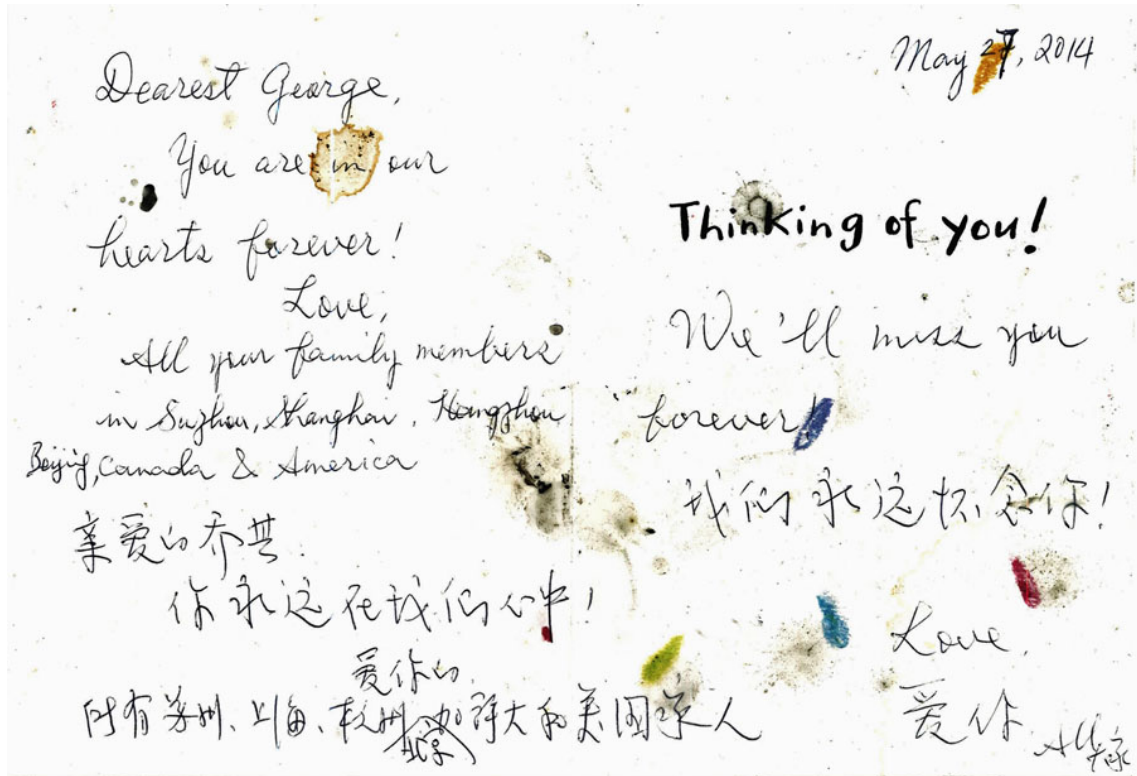 Dearest George,
You are in our
hearts forever!
Love,
All your family members
in Suzhou, Shanghai, Hangzhou
Beijing, Canada & America
亲爱的乔其
你永远在我们心中!
爱你的
所有苏州、上海、杭州 北京 加拿大和美国家人
May 27, 2014
Thinking of you!
We'll miss you
forever!
我们永远怀念你!
Love,
爱你
All